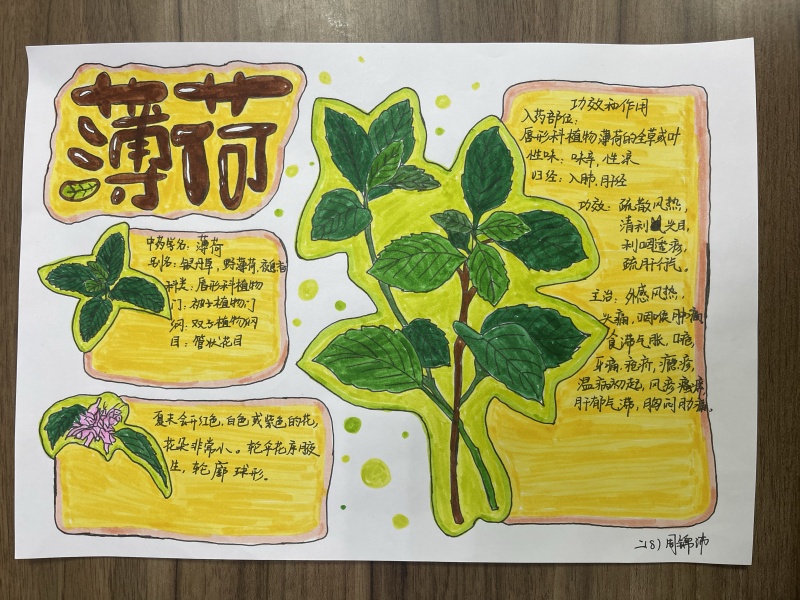 薄荷
中药学名：薄荷
别名：银丹草，野薄荷，夜息香
科类：唇形科植物
门：被子植物门
纲：双子植物纲
目：管状花目
夏末会开红色，白色或紫色的花，
花朵非常小。轮伞花序腋
生，轮廓球形。
功效和作用
入药部位：
唇形科植物薄荷的全草或叶
性味：味辛，性凉
归经：入肺，肝经
功效：疏散风热，
清利头目，
利咽透疹，
疏肝行气。
主治：外感风热，
头痛，咽喉肿痛
食滞气胀，口疮，
牙痛，疮疥，瘾疹，
温病初起，风疹瘙痒，
肝郁气滞，胸闷胁痛。
二(8) 周锦沛